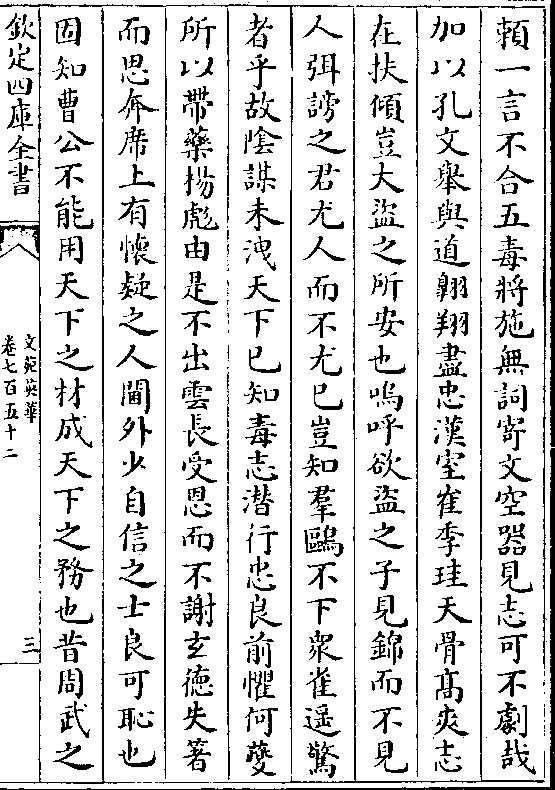 頼一言不合五毒將施無詞寄文空器見志可不劇哉
加以孔文舉與道翺翔盡忠漢室崔季珪天骨髙爽志
在扶傾豈大盜之所安也嗚呼欲盜之子見錦而不見
人弭謗之君尤人而不尤已豈知羣鷗不下衆雀遥驚
者乎故隂謀未洩天下已知毒志潛行忠良前懼何夔
所以帶藥揚彪由是不出雲長受恩而不謝玄德失箸
而思奔席上有懷疑之人閫外少自信之士良可恥也
固知曹公不能用天下之材成天下之務也昔周武之
欽定四庫全書
文苑英華
卷七百五十二
三